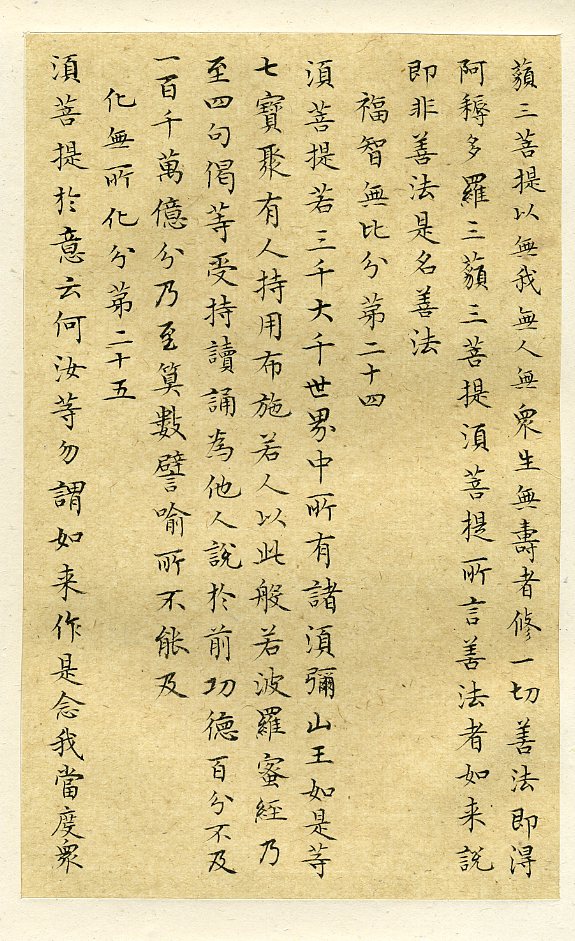 藐三菩提以無我無人無衆生無壽者修一切善法即得
阿耨多羅三藐三菩提須菩提所言善法者如来説
即非善法是名善法
福智無比分第二十四
須菩提若三千大千世界中所有諸須彌山王如是等
七寶聚有人持用布施若人以此般若波羅蜜經乃
至四句偈等受持讀誦為他人説於前功德百分不及
一百千萬億分乃至算數譬喻所不能及
化無所化分第二十五
須菩提於意云何汝等勿謂如来作是念我當度衆